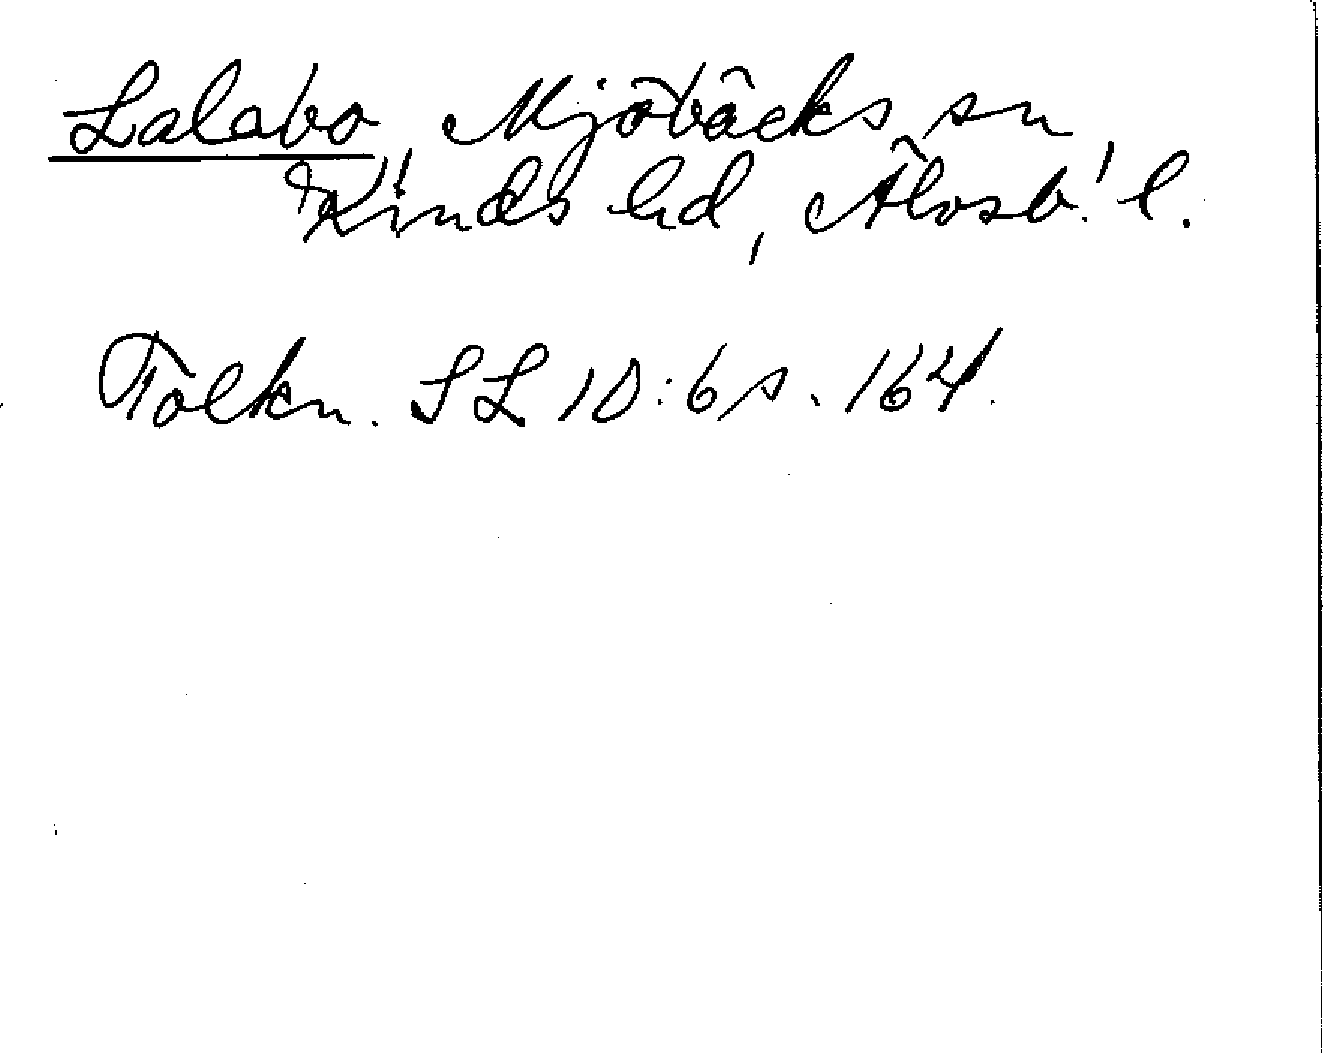 Lalabo, Mjöbäcks sn,
Kinds hd, Älvsb. l.
Tolkn. SL 10:6 s. 164.